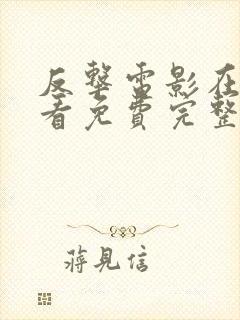 反擊電影在
看免費完整
蔣見信